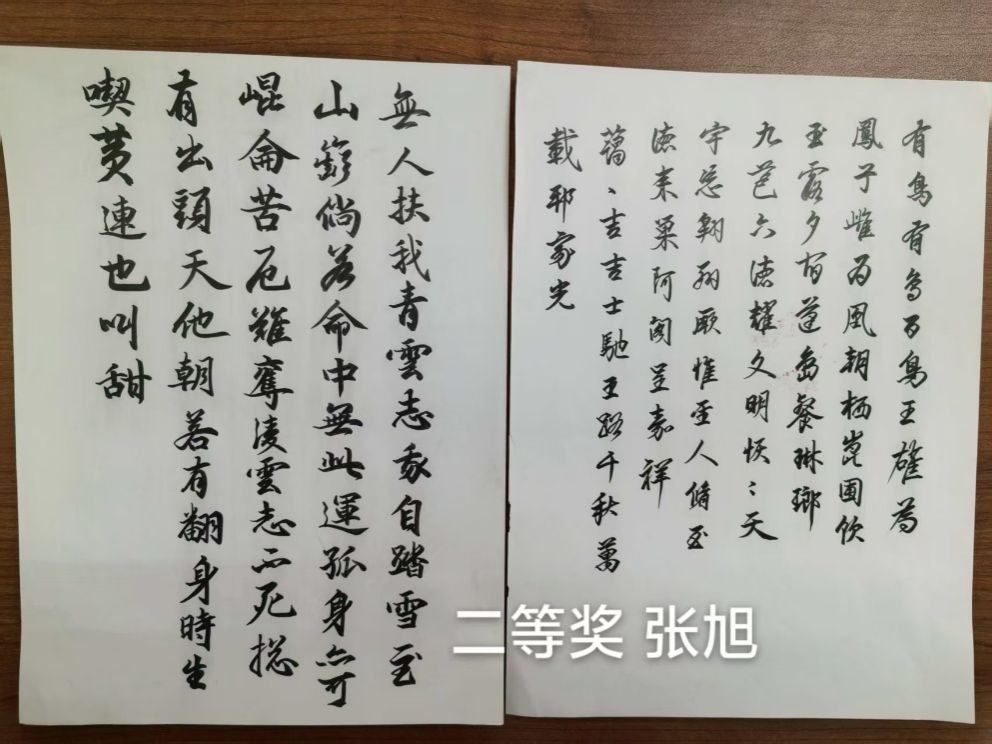 有鳥有鸟百鳥王雄為
鳳子雌为凰朝栖崑圃飲
玉露夕宿蓬島餐琳瑯
九苞六德耀文明恢々天
宇恣翱翔厥惟聖人脩至
德来巢阿阁呈嘉祥
藹々吉吉士馳王路千秋萬
載邦家光
無人扶我青雲志我自踏雪至
山巅倘若命中無此運孤身亦可
崐侖苦厄難奪淩雲志不死捴
有出頭天他朝若有翻身時生
喫黄連也叫甜
二等奖 张旭